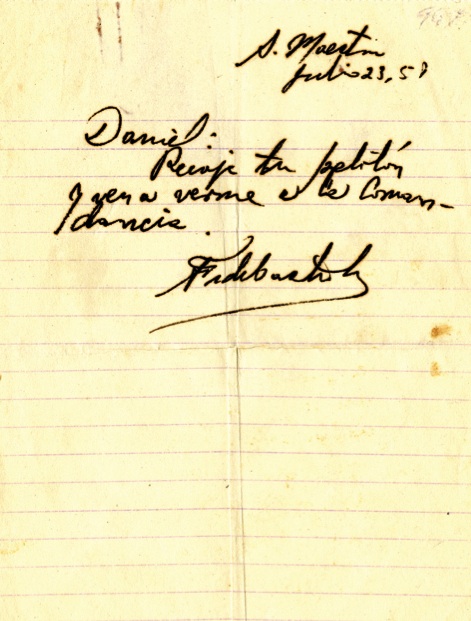 S. Maestra
Julio 23, 58
Daniel:
Recoje tu pelotón
y ven a verme a la Coman-
dancia.
Fidel Castro R